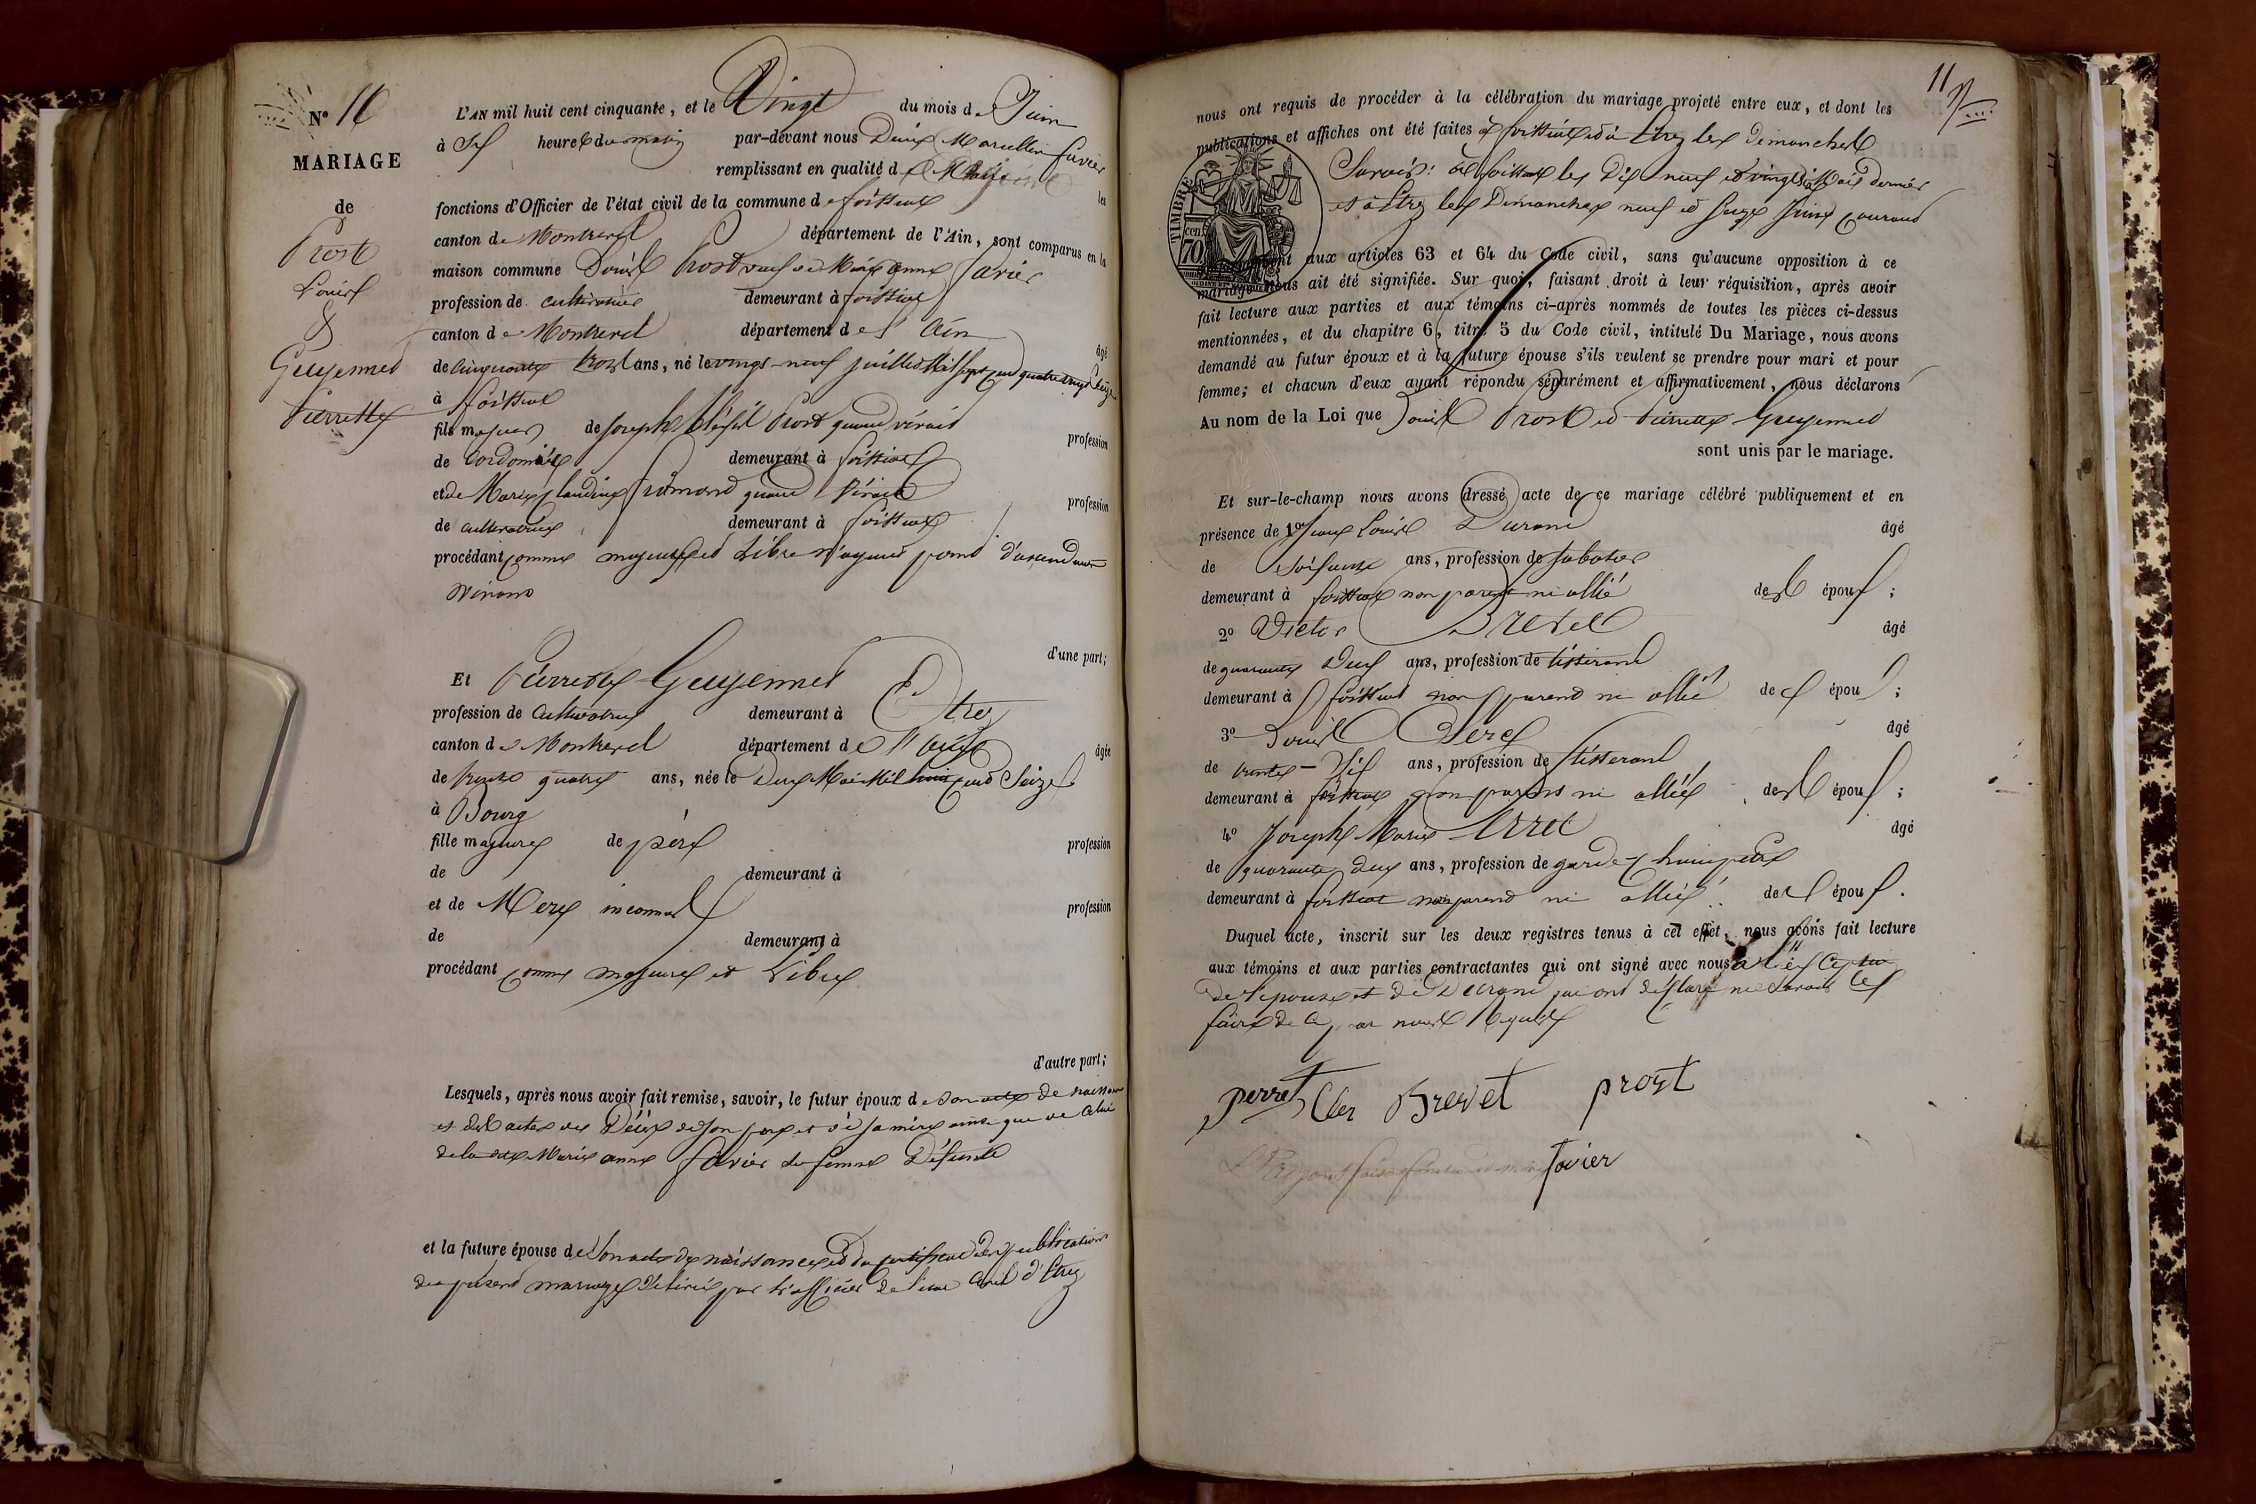 No 11
MARIAGE
de
Prost
Louis
&
Guyennet
Pierrette
L'AN mil huit cent cinquante, et le Vingt du mois de Juin
à Six heures du matin par-devant nous Denis Marcellin favier
remplissant en qualité de Maire les
fonctions d'Officier de l'état civil de la commune de foissiat
canton de Montrevel département de l'Ain, sont comparus en la
maison commune Louis Prost veuf de Marie anne favier
profession de cultivateur demeurant à foissiat
canton de Montrevel département de l'Ain âgé
de Cinquante trois ans, né le vingt-neuf juillet Mil Sept Cend quatre vingt Seize
à foissiat
fils majeur de joseph Prost quand vivait profession
de Cordonnier demeurant à foissiat
et de Marie Claudine quand Vivait profession
de cultivatrice demeurant à foissiat
procédant comme majeur et Libre n'ayand poind d'ascendant
Vivant
d'une part;
Et Pierrette Guyennet
profession de Cultivatrice demeurant à Etrez
canton de Montrevel département de l'Ain âgée
de trente quatre ans, née le Deux Mai Mil huit Cend Seize
à Bourg
fille majeure de père profession
de demeurant à
et de Mere inconnus profession
de demeurant à
procédant comme majeure et Libre
d'autre part;
Lesquels, après nous avoir fait remise, savoir, le futur époux de Son acte de naissance
et des actes des Décès de Son pere et de Sa mère ainsi que de Celui
de la dite Marie anne favier Sa femme Défunte
et la future épouse de Son acte de naissance et du certificat de publication
de present mariage Délivré par L'officier de l'état Civil d'Etrez
11
nous ont requis de procéder à la célébration du mariage projeté entre eux, et dont les
publications et affiches ont été faites à foissiat et à Etrez les Dimanches
Savoir: à foissiat les Dix neuf et vingt six Mai dernier
et à Etrez les Dimanches neuf et Seize Juin Courand
TIMBRE
cent.
70
conformément aux articles 63 et 64 du Code civil, sans qu'aucune opposition à ce
mariage nous ait été signifiée. Sur quoi, faisant droit à leur réquisition, après avoir
fait lecture aux parties et aux témoins ci-après nommés de toutes les pièces ci-dessus
mentionnées, et du chapitre 6, titre 5 du Code civil, intitulé Du Mariage, nous avons
demandé au futur époux et à la future épouse s'ils veulent se prendre pour mari et pour
femme; et chacun d'eux ayant répondu séparément et affirmativement, nous déclarons
Au nom de la Loi que Louis Prost et Pierrette Guyennet
sont unis par le mariage.
Et sur-le-champ nous avons dressé acte de ce mariage célébré publiquement et en
présence de 1o Jean Louis Durand âgé
de Soixante ans, profession de Sabotier
demeurant à foissiat non parent ni allié des époux;
2o Victor Brevet âgé
de quarante Deux ans, profession de tisserand
demeurant à foissiat non parend ni allié des époux;
3o Louis Clerc âgé
de trente-Six ans, profession de tisserand
demeurant à foissiat non parent ni allié des époux;
4o Joseph Marie Perret âgé
de quarante deux ans, profession de garde Champetre
demeurant à foissiat non parend ni allié des époux.
Duquel acte, inscrit sur les deux registres tenus à cet effet, nous avons fait lecture
aux témoins et aux parties contractantes qui ont signé avec nous
de l'epouse et de Durand qui ont déclaré ne Savoir Le
faire de Ce par nous Requis
perret Cler Brevet prost
favier